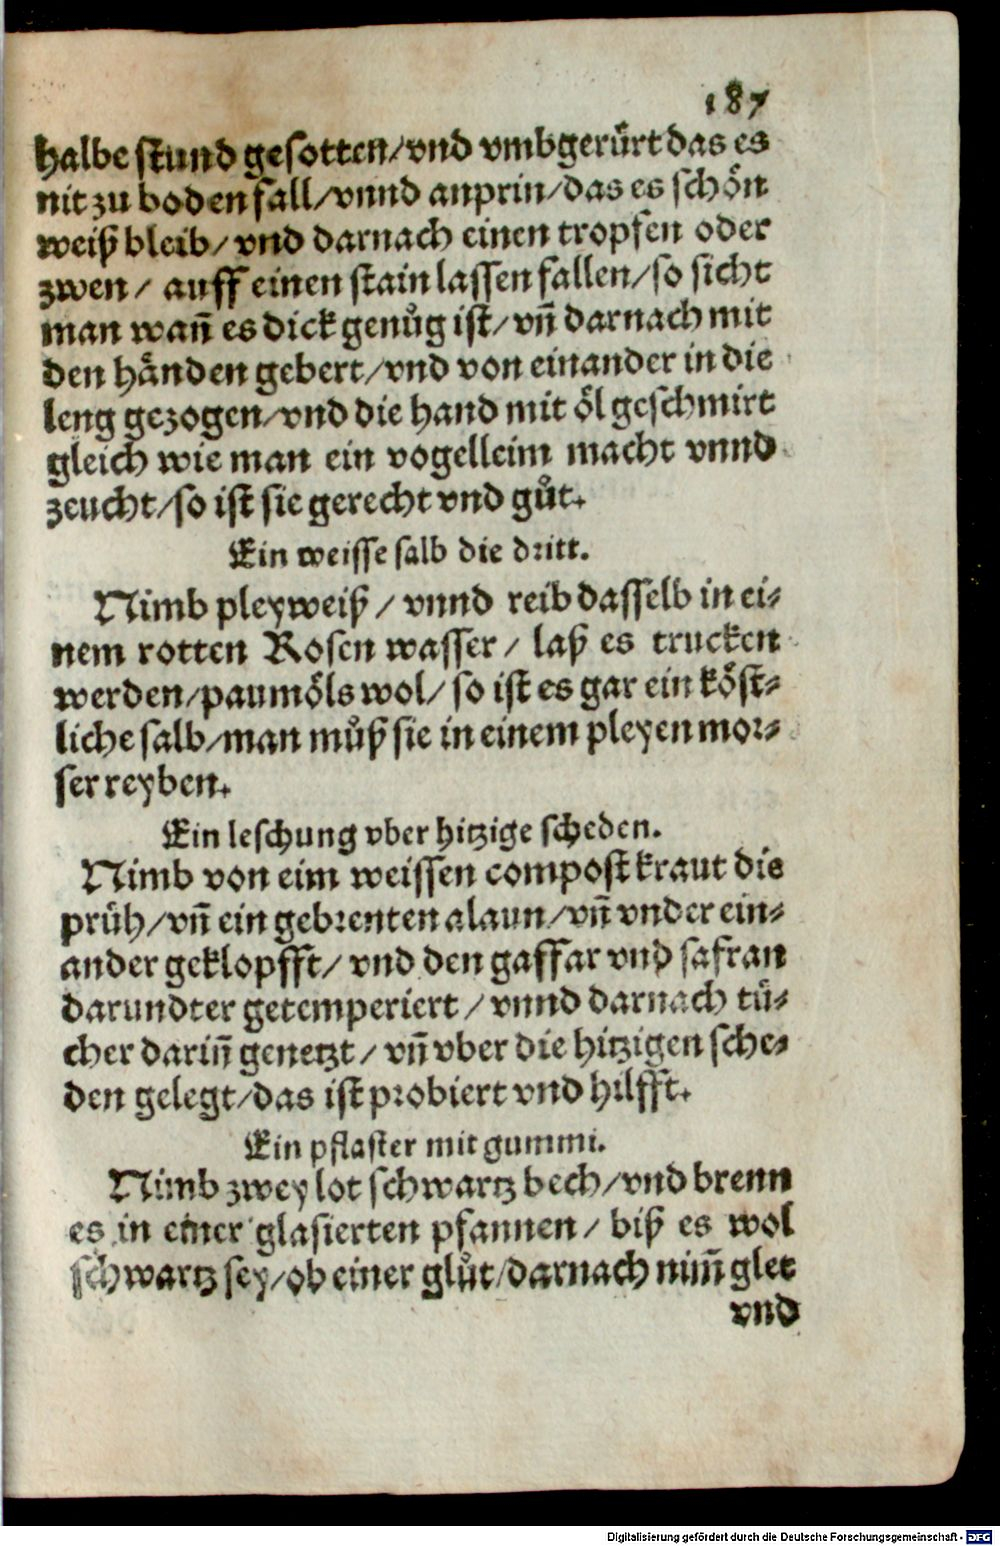 187
halbe stund gesotten/vnd vmbgerürt das es
nit zu boden fall/vnnd anprin/das es schön
weiß bleib/vnd darnach einen tropfen oder
zwen/ auff einen stain lassen fallen/so sicht
man wañ es dick genůg ist/vñ darnach mit
den händen gebert/vnd von einander in die
leng gezogen/vnd die hand mit öl geschmirt
gleich wie man ein vogelleim macht vnnd
zeucht/so ist sie gerecht vnd gůt.
Ein weisse salb die dritt.
Nimb pleyweiß/ vnnd reib dasselb in ei⸗
nem rotten Rosen wasser/ laß es trucken
werden/paumöls wol/ so ist es gar ein köst⸗
liche salb/man můß sie in einem pleyen mor⸗
ser reyben.
Ein leschung vber hitzige scheden.
Nimb von eim weissen compost kraut die
prüh/vñ ein gebrenten alaun/vñ vnder ein⸗
ander geklopfft/ vnd den gaffar vnd safran
darundter getemperiert/ vnnd darnach tü⸗
cher dariñ genetzt/ vñ vber die hitzigen sche⸗
den gelegt/das ist probiert vnd hilfft.
Ein pflaster mit gummi.
Nimb zwey lot schwartz bech/vnd brenn
es in einer glasierten pfannen/ biß es wol
schwartz sey/ob einer glůt/darnach nim̃ glet
vnd
Digitalisierung gefördert durch die Deutsche Forschungsgemeinschaft - DFG